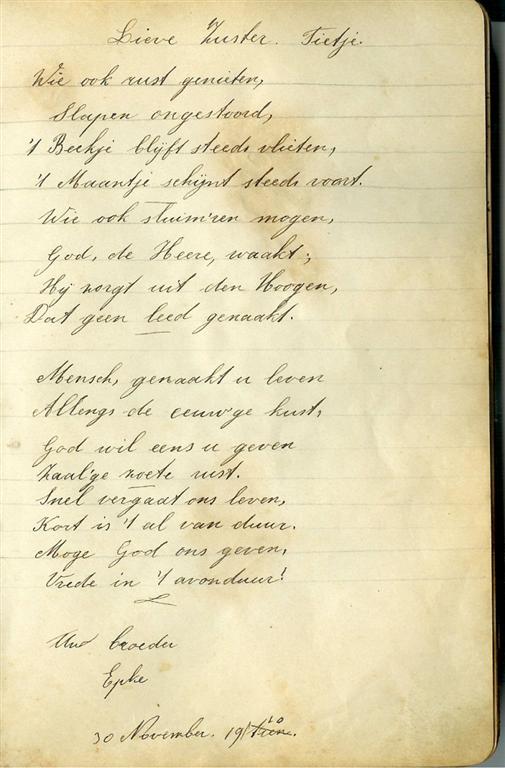 Lieve Zuster. Tietje.
Wie ook rust genieten,
Slapen ongestoord,
't Beekje blijft steeds vlieten,
't Maantje schijnt steeds voort.
Wie ook sluim'ren mogen,
God, de Heere, waakt;
Hij zorgt uit den Hoogen,
Dat geen leed genaakt.
Mensch, genaakt u leven
Allengs de eeuw'ge kust,
God wil eens u geven
Zaal'ge zoete rust.
Snel vergaat ons leven,
Kort is 't al van duur.
Moge God ons geven,
Vrede in 't avonduur!
Uw broeder
Epke
30 November. 1910.